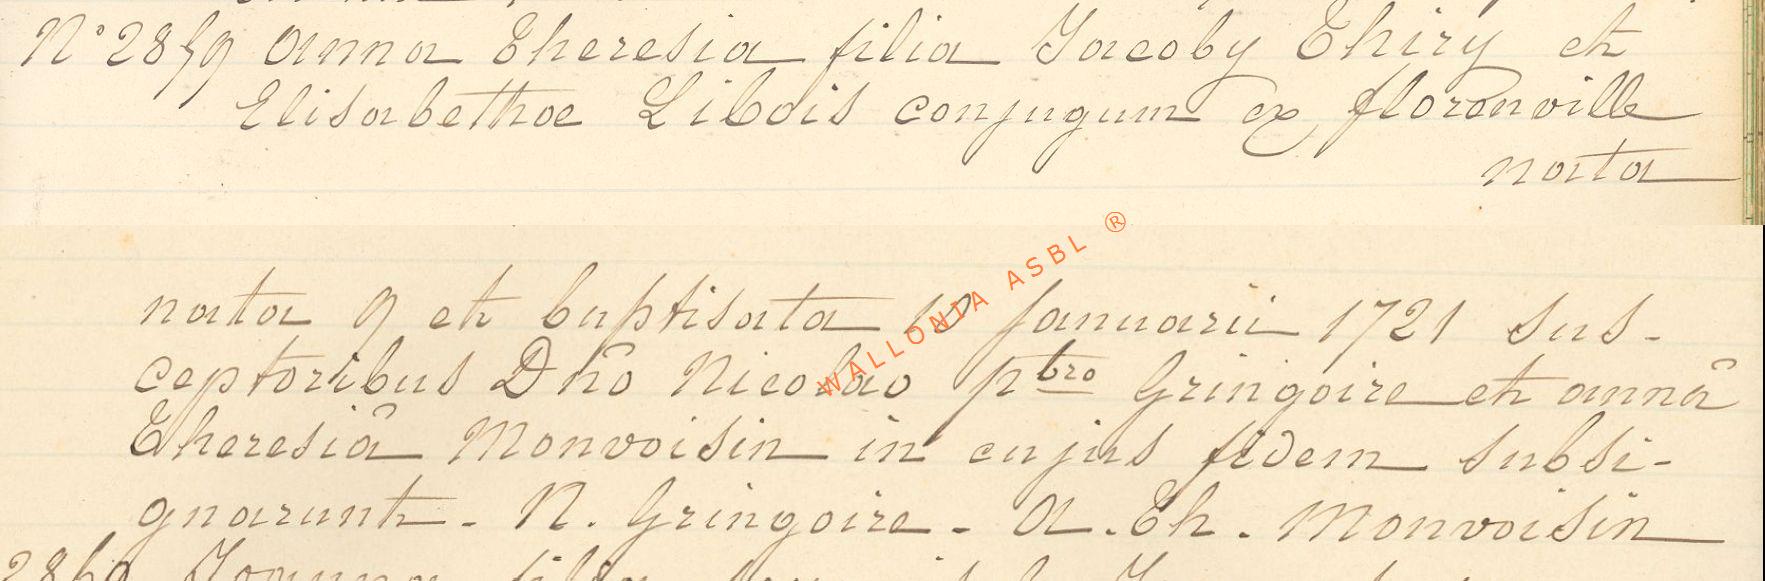 N° 2859 Anna Theresia filia Jacoby Thiry et
Elisabethae Libois conjugum ex florenville
nata
nata 9 et baptisata 10 Januarii 1721 sus-
ceptoribus Dño Nicolao pbro Gringoire et annâ
Theresiâ Monvoisin in cujus fidem subsi-
gnarunt - N. Gringoire - A. Th. Monvoisin
WALLONIA ASBL ®